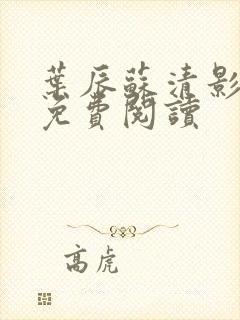 葉辰蘇清影
免費閱讀
高虎